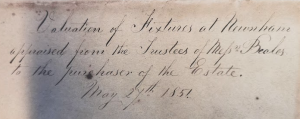 Valuation of Fixtures at Newnham
appraised from the Trustees of Messrs Beales
to the purchaser of the Estate.
May 27th 1851